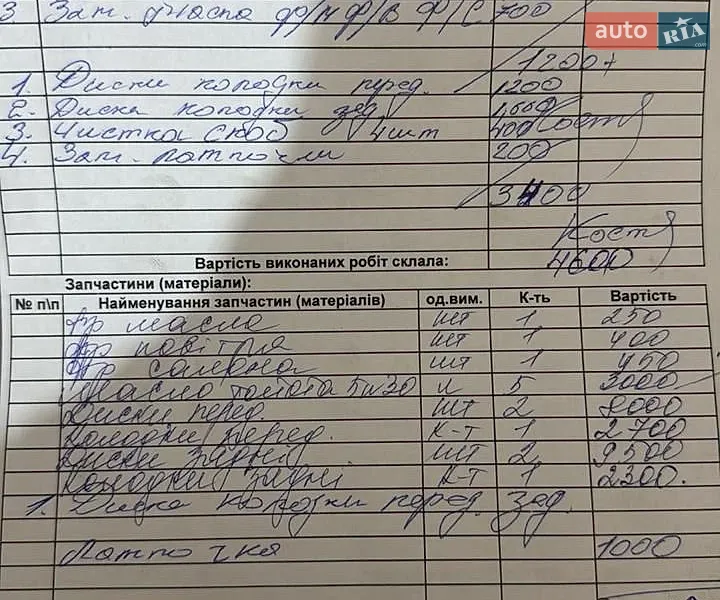 3 Зам. масла ф/м ф/в ф/с 700
auto RIA .com
1200+
1. Диски колодки перед. 1200
2. Диска колодки зад 1600
3. Чистка скоб 4шт 400 Костя
4. Зам. лампочки 200
3400
Костя
Вартість виконаних робіт склала: 4600
Запчастини (матеріали):
№ п\п Найменування запчастин (матеріалів) од.вим. К-ть Вартість
фр масла шт 1 250
фр повітря шт 1 400
фр салона шт 1 450
Масло тойота 5w30 л 5 3000
Диски перед. шт 2 8000
Колодки перед. к-т 1 2700
Диски задні шт 2 9500
Колодки задні. к-т 1 2300.
1. Диска колодки перед. зад.
Лампочка 1000